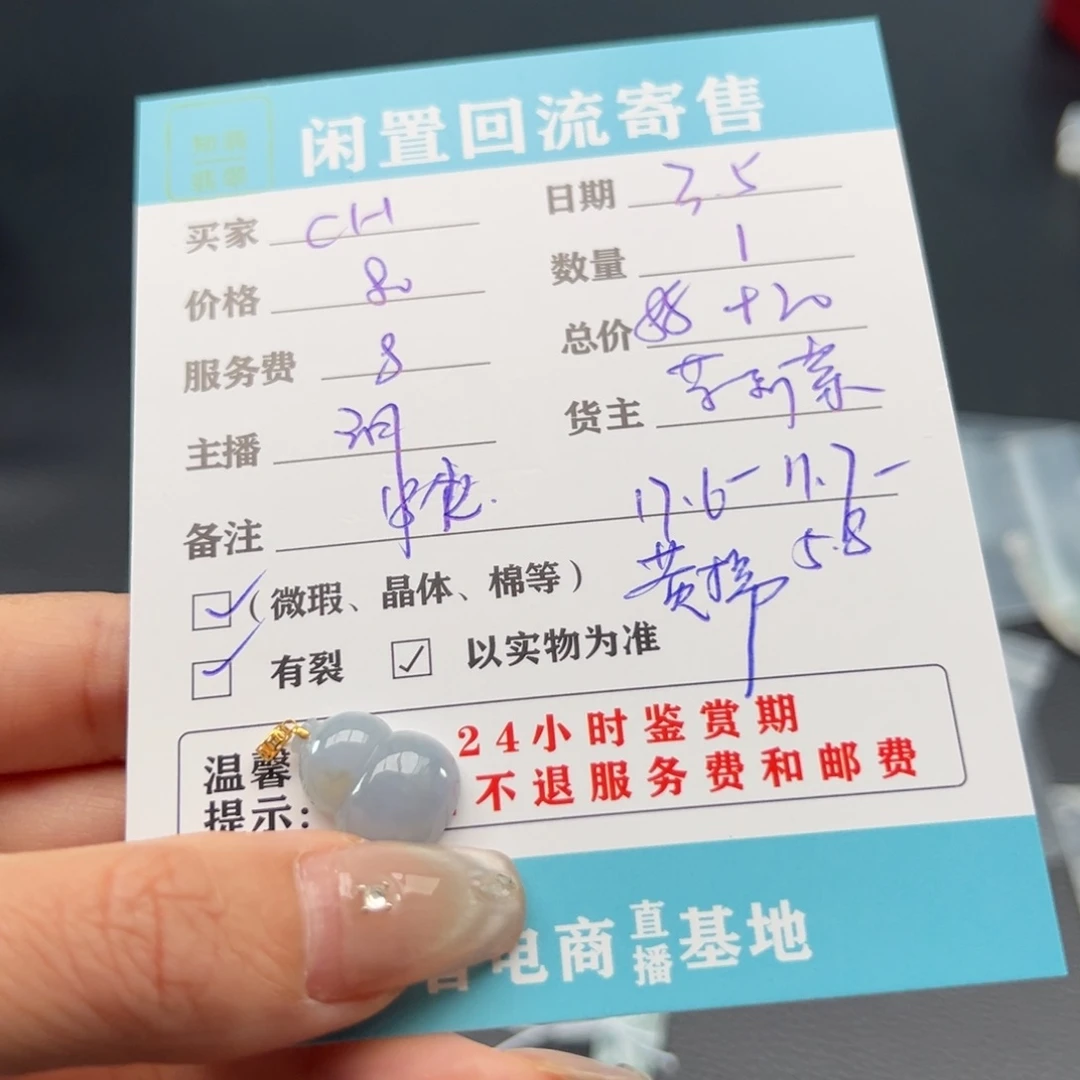 闲置回流寄售
买家 CH 日期 3.5
价格 80 数量 1
服务费 8 总价 88 +20
主播 货主
备注 17.6- 11.7-
5.8
(微瑕、晶体、棉等)
有裂 以实物为准
温馨 24小时鉴赏期
提示: 不退服务费和邮费
电商直播基地